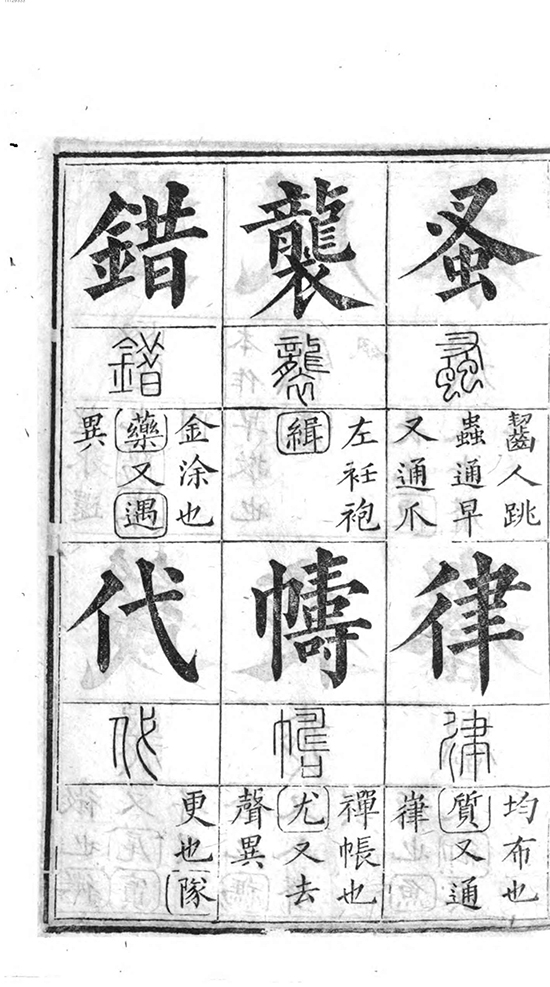 蚤
蚤
齧人跳
蟲通早
又通爪
律
律
均布也
質又通
嵂
襲
襲
左衽袍
緝
幬
幬
襌帳也
尤又去
聲異
錯
錯
金涂也
藥又遇
異
代
代
更也隊